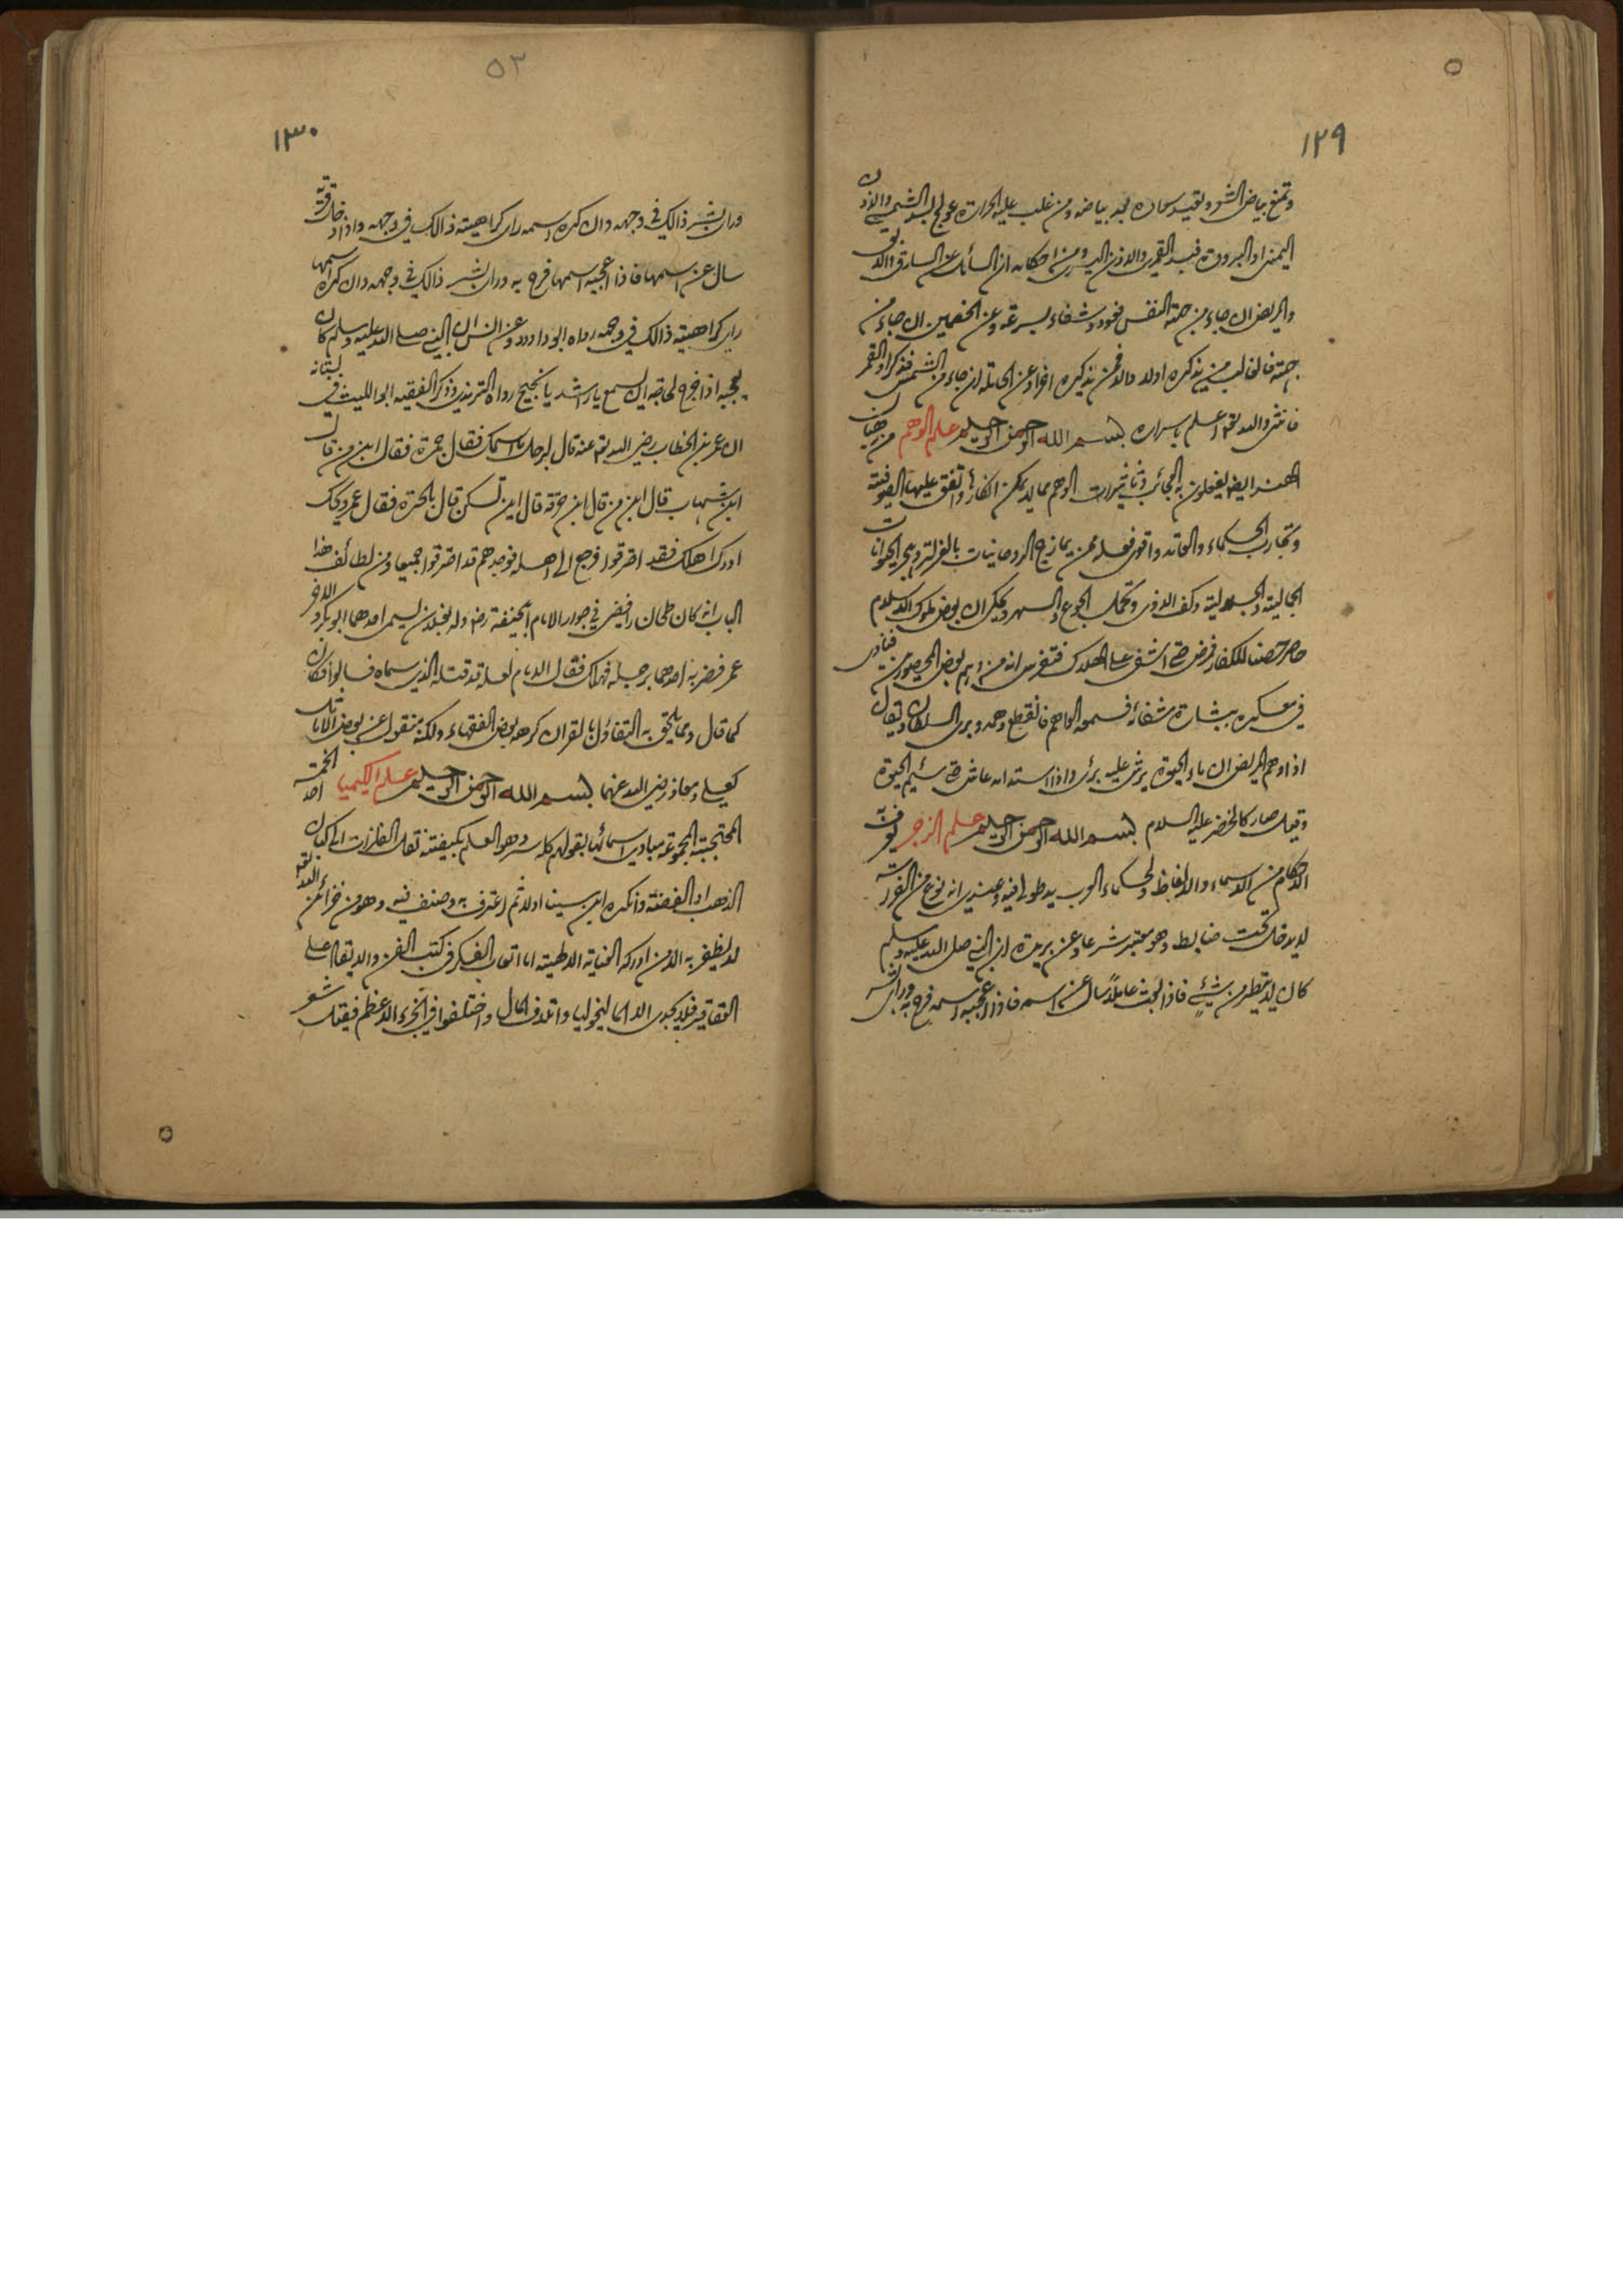 ١٢٩
وتمنع بياض الشعر وتعيد سواده بعد بياضه ومن غلب عليه الحرارة عولج بسد الشمسي والاذن
اليمنى او البرودة فبسد القمري والاذن اليسرى ومن احكامه ان السائل عن السارق والآبق
والمريض ان جاء من جهة النفس فعود وشفاء بسرعة وعن الخصمين ان جاء من
جهته فالغالب من يذكره اولا والا فمن يذكره اخرا وعن الحاملة ان جاء من الشمس فذكر او القمر
فانثى والله تعالى اعلم باسراره بسم الله الرحمن الرحيم علم الوهم من رهبان
الهند ايضا يفعلون به العجائب وتاثيرات الوهم مما لا يمكن انكارها واتفق عليها الصوفية
وتجارب الحكماء والعامة واقوى فعله ممن يمازج الروحانيات بالعزلة وهجر الحيوانات
الجمالية والجلالية وكف الاذى وتحمل الجوع والسهر ويحكى ان بعض ملوك الاسلام
حاصر حصنا للكفار فمرض حتى اشفى على الهلاك فتفرس انه من وهم بعض المحصورين فنادى
في معسكره ببشارة شفائه فسمعه الواهم فانقطع وهمه وبرى السلطان ويقال
اذا وهم المريض ان ماء الحيوة يرش عليه برئ واذا استدامه عاش حتى سئم الحيوة
وقيل صار كالخضر عليه السلام بسم الله الرحمن الرحيم علم الزجر يعرف به
الاحكام من الاسماء والالفاظ ولحكماء العرب يد طولى فيه وعندي انه نوع من الفراسة
لا يدخل تحت ضابط وهو معتبر شرعا وعن بريدة ان النبي صلى الله عليه وسلم
كان لا يتطير من شيء فاذا بعث عاملا سال عن اسمه فاذا اعجبه اسمه فرح به وراى بشر
٥٢
١٣٠
وراى بشر ذالك في وجهه وان كره اسمه راى كراهيته ذالك في وجهه واذا دخل قرية
سال عن اسمها فاذا اعجبه اسمها فرح به وراى بشر ذالك في وجهه وان كره اسمها
راى كراهيته ذالك في وجهه رواه ابو داود وعن انس ان النبي صلى الله عليه وسلم كان
يعجبه اذا خرج لحاجته ان يسمع يا راشد يا نجيح رواه الترمذي وذكر الفقيه ابو الليث في بستانه
ان عمر بن الخطاب رضي الله تعالى عنه قال لرجل ما اسمك فقال جمرة فقال ابن من قال
ابن شهاب قال ابن من قال ابن حرقة قال اين تسكن قال بالحرة فقال عمر ويحك
ادرك اهلك فقد احترقوا فرجع الى اهله فوجدهم قد احترقوا جميعا ومن لطائف هذا
الباب انه كان طحان رافضي في جوار الامام ابي حنيفة رض وله بغلان يسمى احدهما ابو بكر والاخر
عمر فضربه احدهما برجله فهلك فقال الامام لعله قد قتله الذي سماه فسالوا فكان
كما قال ومما يلحق به التفاؤل بالقران كرهه بعض الفقهاء ولكنه منقول عن بعض الاماثل
كعلي ومعاذ رضي الله عنهما بسم الله الرحمن الرحيم علم الكيميا احد الخمسة
المحتجبة المجموعة مبادى اسمائها بقولهم كله سر وهو العلم بكيفية نقل الفلزات الى كيان
الذهب او الفضة وانكره ابن سينا اولا ثم اعترف به وصنف فيه وهو من خزائن الله تعالى
لا يظفر به الا من ادركه العناية الالهية اما اتعاب الفكر في كتب الفن والايقاد على
العقاقير فلا يجدى الا الماليخوليا واتلاف المال واختلفوا في الجزء الاعظم فقيل شعر